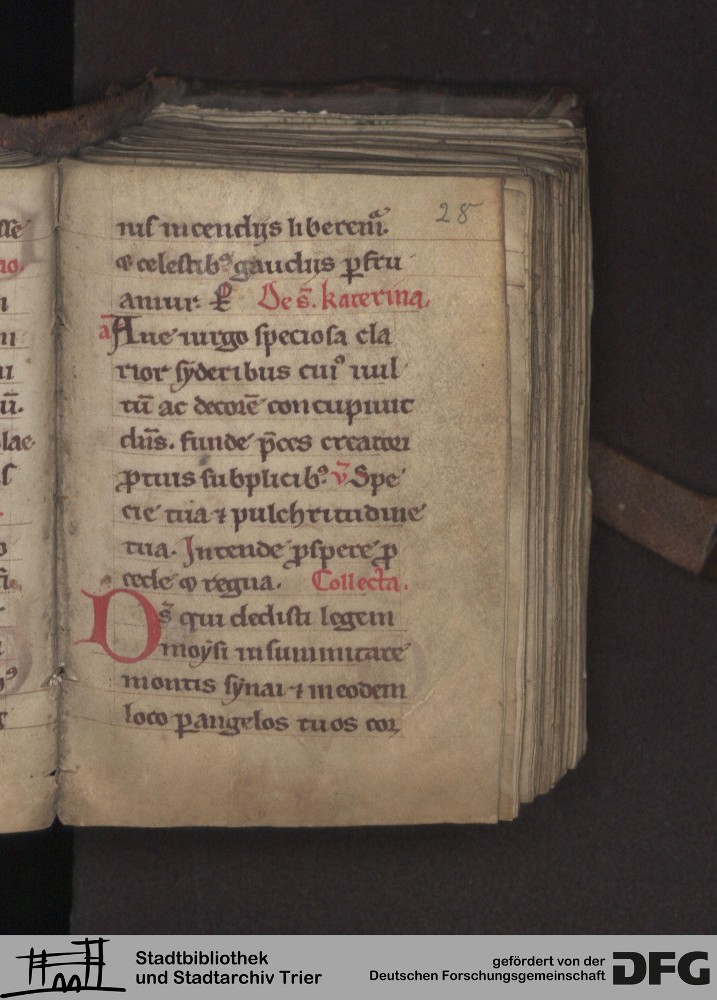 28
nis incendijs liberem̄
⁊ celestibꝰ gaudijs ꝑfru
amur. ꝑ De s̄. katerina.
a Aue uirgo speciosa cla
rior syderibus cuiꝰ uul
tū ac decorē concupiuit
dn̄s. funde p̄ces creatori
ꝓ tuis subplicibꝰ. v̄ Spe
cie tua ⁊ pulchritudine
tua. Intende ꝓspere ꝓ
cede ⁊ regna. Collecta.
Ds̄ qui dedisti legem
moysi in summitate
montis synai ⁊ in eodem
loco ꝑ angelos tuos cor
Stadtbibliothek
und Stadtarchiv Trier
gefördert von der
Deutschen Forschungsgemeinschaft
DFG